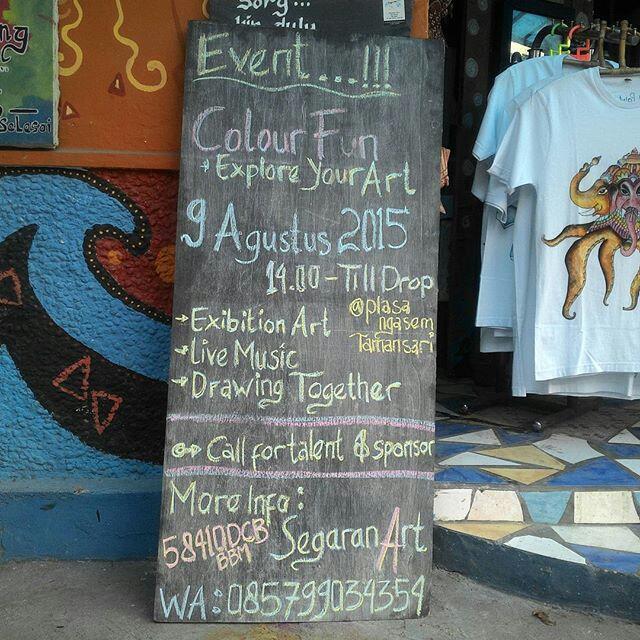 Sorg...
kin dulu
Event...!!!
Colour Fun
Explore Your Art
9 Agustus 2015
14.00 - Till Drop
@plasa
ngasem
Tamansari
→ Exibition Art
→ Live Music
→ Drawing Together
Call for talent & sponsor
More Info:
58410DCB
BBM
Segaran Art
WA: 085799034354